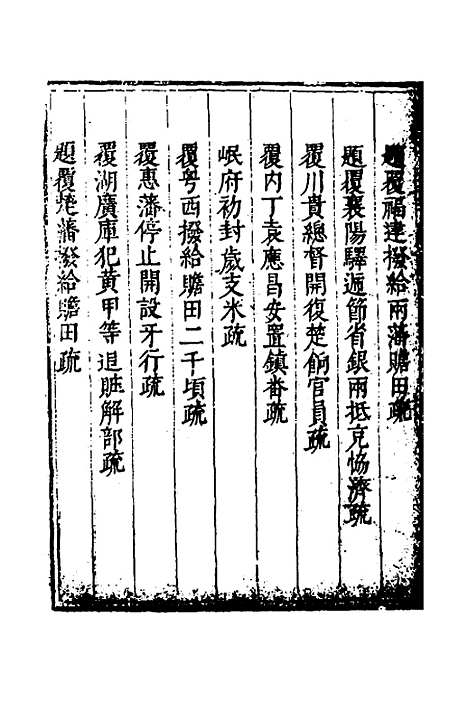 題覆福建撥給兩藩贍田疏
題覆襄陽驛遞節省銀兩抵充協濟疏
覆川貴總督開復楚餉官員疏
覆內丁袁應昌安置鎮番疏
岷府初封歲支米疏
覆粵西撥給贍田二千頃疏
覆惠藩停止開設牙行疏
覆湖廣庫犯黃甲等追賍解部疏
題覆 藩撥給贍田疏